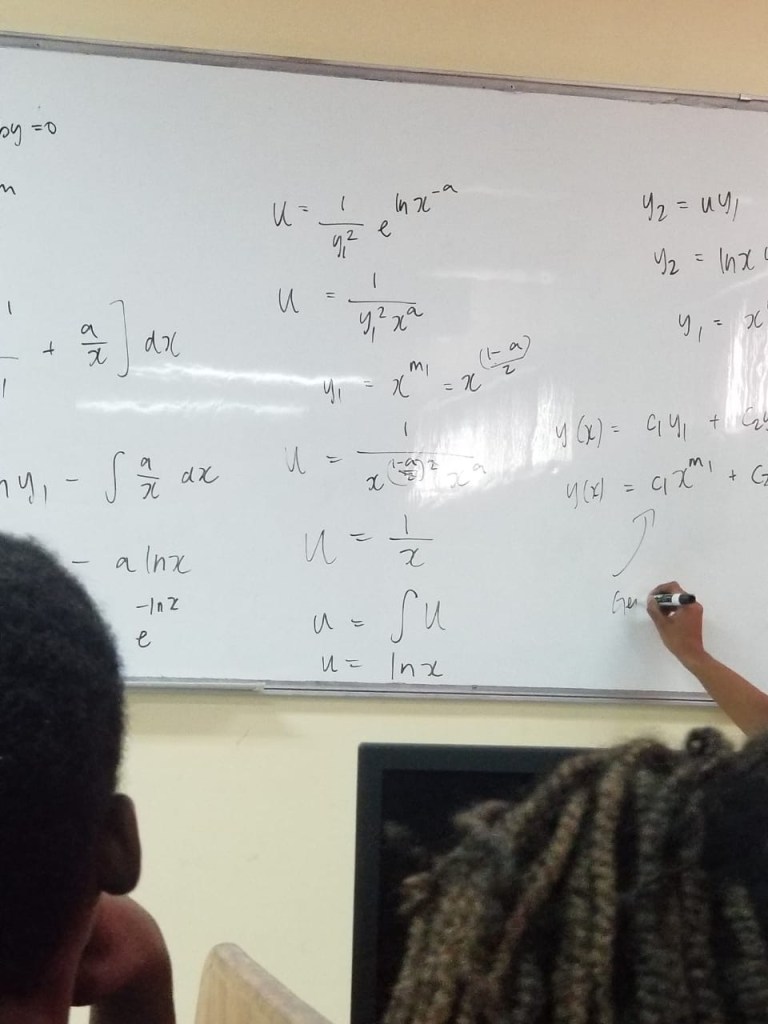 by = 0
+ a/x ] dx
y₁ - ∫ a/x dx
- a ln x
e^(-ln x)
U = 1/y₁² e^(ln x^(-a))
U = 1/(y₁² x^a)
y₁ = x^(m₁) = x^((1-a)/2)
U = 1/(x^((1-a)/2)² x^a)
U = 1/x
u = ∫ U
u = ln x
y₂ = u y₁
y₂ = ln x
y₁ = x
y(x) = c₁ y₁ + c₂ y
y(x) = c₁ x^(m₁) + c₂
Gen